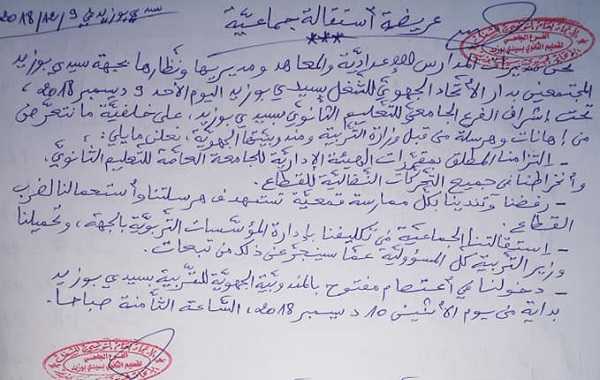 سيدي بوزيد في 2018/12/9
عريضة استقالة جماعيّة
***
نحن مديرات المدارس الإعداديّة والمعاهد ومديريها ونظّارها بجهة سيدي بوزيد
المجتمعين بدار الاتّحاد الجهويّ للشغل بسيدي بوزيد اليوم الأحد 9 ديسمبر 2018،
تحت إشراف الفرع الجامعيّ للتعليم الثانويّ بسيدي بوزيد، على خلفيّة ما نتعرّض
من إهانات وهرسلة من قبل وزارة التربية ومندوبيّتها الجهويّة، نعلن ما يلي:
- التزامنا المطلق بمقرّرات الهيئة الإداريّة للجامعة العامّة للتعليم الثانويّ،
وانخراطنا في جميع التحرّكات النضاليّة للقطاع.
- رفضنا وتنديدنا بكلّ ممارسة قمعيّة تستهدف هرسلتنا واستعمالنا لضرب
القطاع.
- استقالتنا الجماعيّة من تكليفنا بإدارة المؤسّسات التربويّة بالجهة، وتحميلنا
وزير التربية كلّ المسؤوليّة عمّا سينجرّ عن ذلك من تبعات.
- دخولنا في اعتصام مفتوح بالمندوبيّة الجهويّة للتربية بسيدي بوزيد
بداية من يوم الاثنين 10 ديسمبر 2018، الساعة الثامنة صباحا.
الفرع الجامعي
للتعليم الثانوي بسيدي بوزيد